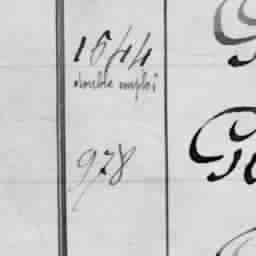 1644
double emploi
978